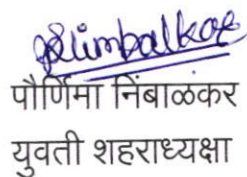 PNimbalkar
पौर्णिमा निंबाळकर
युवती शहराध्यक्षा